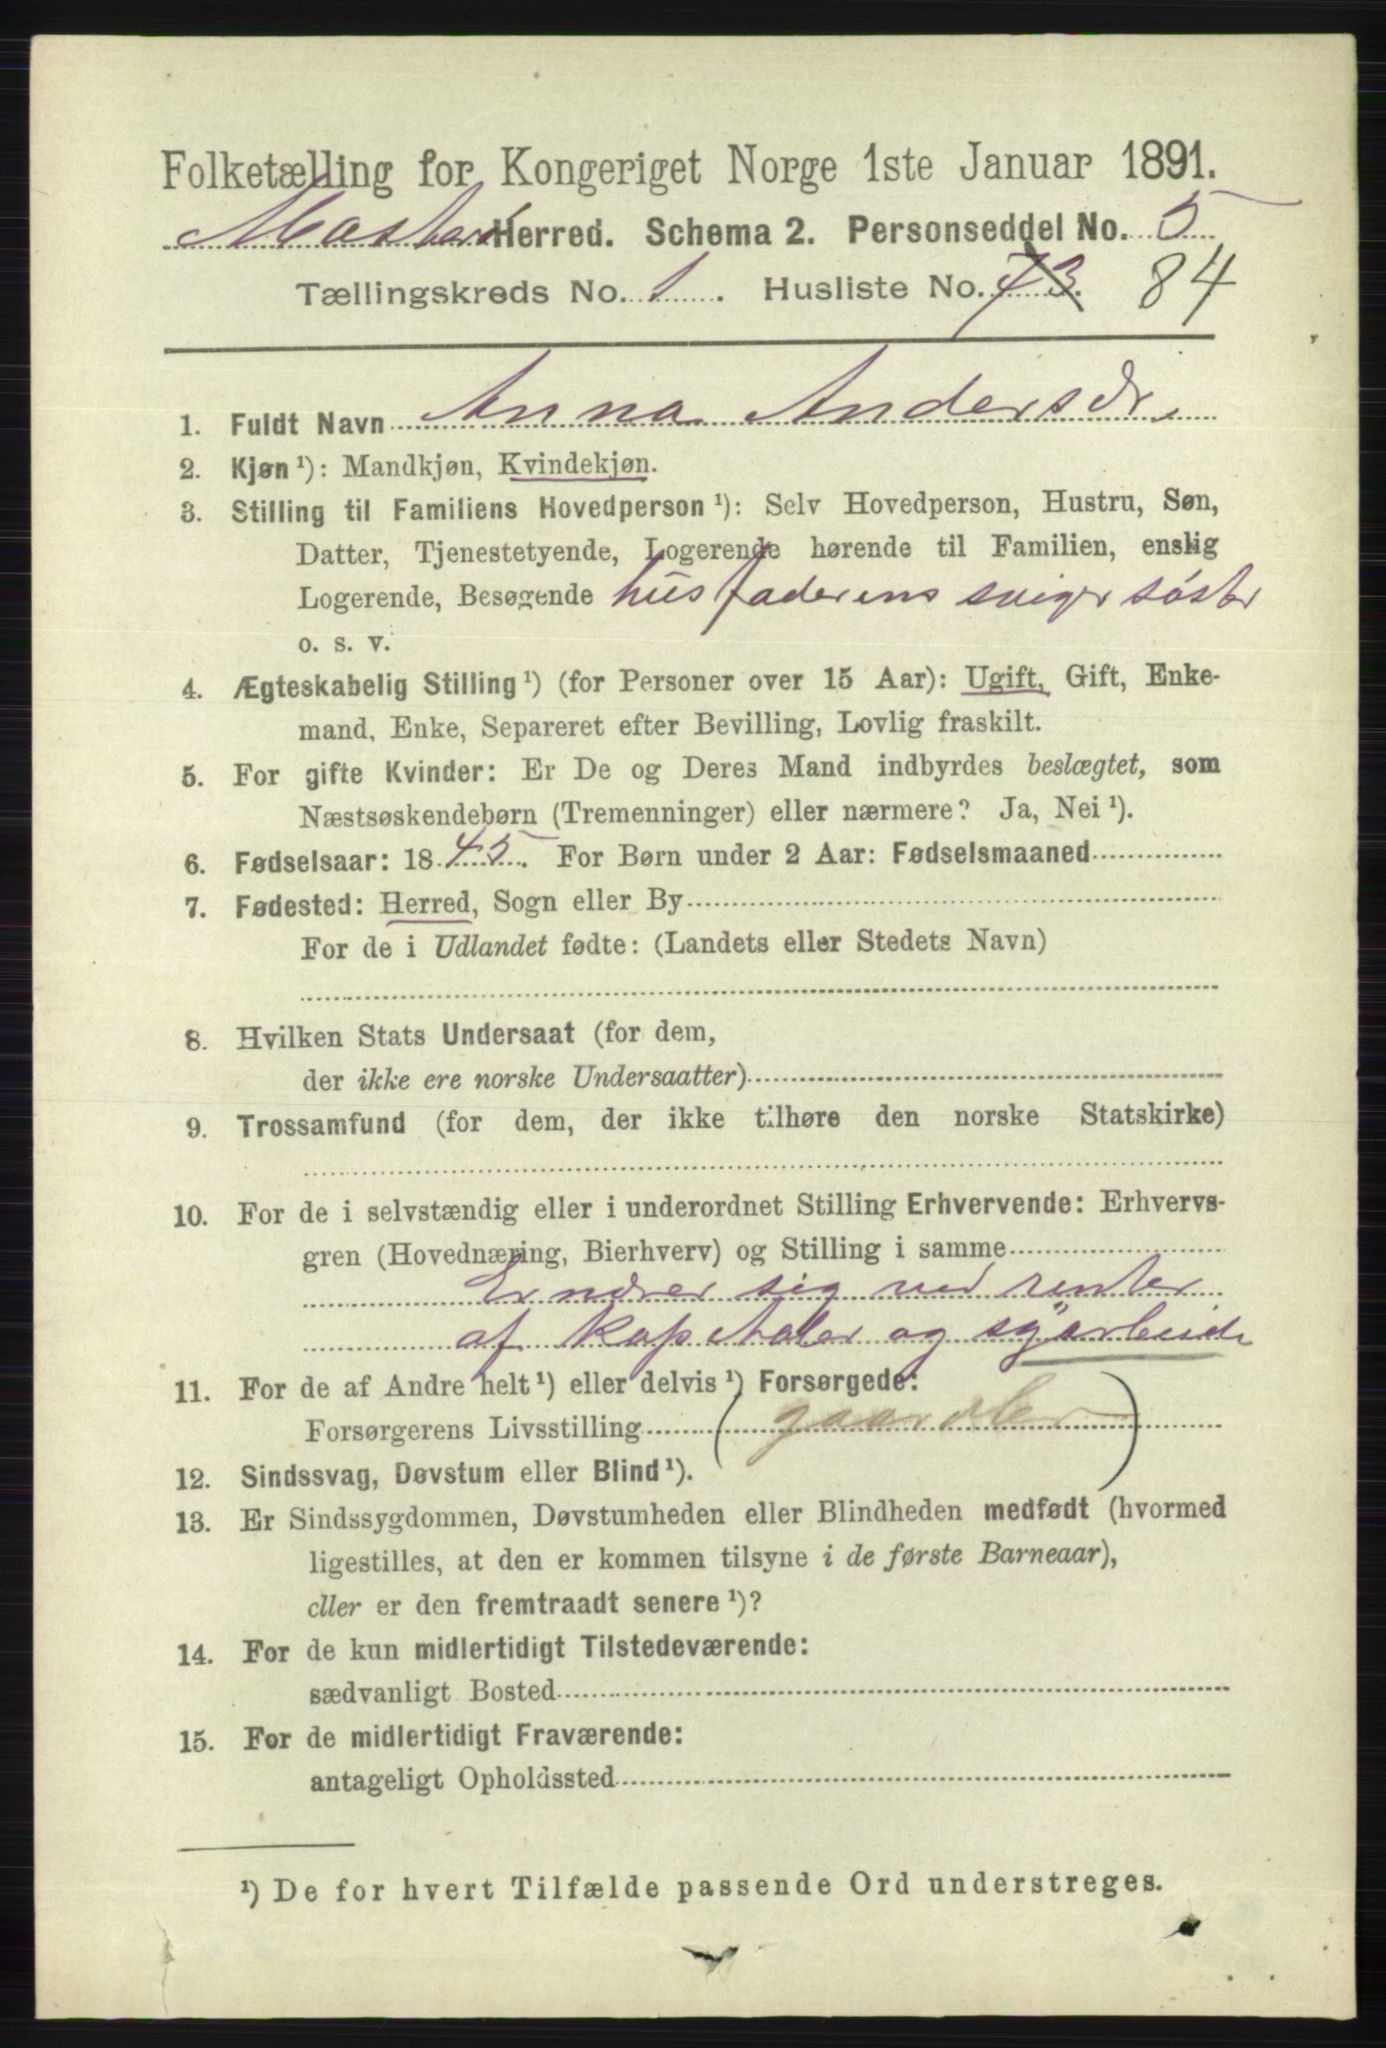 Folketælling for Kongeriget Norge 1ste Januar 1891.
Herred. Schema 2. Personseddel No. 5
Tællingskreds No. 1. Husliste No. 73. 84
1. Fuldt Navn Anna Andersdr.
2. Kjøn ¹): Mandkjøn, Kvindekjøn.
3. Stilling til Familiens Hovedperson ¹): Selv Hovedperson, Hustru, Søn,
Datter, Tjenestetyende, Logerende hørende til Familien, enslig
Logerende, Besøgende husfaderens svigersøster
o. s. v.
4. Ægteskabelig Stilling ¹) (for Personer over 15 Aar): Ugift, Gift, Enke-
mand, Enke, Separeret efter Bevilling, Lovlig fraskilt.
5. For gifte Kvinder: Er De og Deres Mand indbyrdes beslægtet, som
Næstsøskendebørn (Tremenninger) eller nærmere? Ja, Nei ¹).
6. Fødselsaar: 1845. For Børn under 2 Aar: Fødselsmaaned
7. Fødested: Herred, Sogn eller By
For de i Udlandet fødte: (Landets eller Stedets Navn)
8. Hvilken Stats Undersaat (for dem,
der ikke ere norske Undersaatter)
9. Trossamfund (for dem, der ikke tilhøre den norske Statskirke)
10. For de i selvstændig eller i underordnet Stilling Erhvervende: Erhvervs-
gren (Hovednæring, Bierhverv) og Stilling i samme
Ernærer sig ved renter
af kapitaler og syarbeide
11. For de af Andre helt ¹) eller delvis ¹) Forsørgede:
Forsørgerens Livsstilling (gaardbr)
12. Sindssvag, Døvstum eller Blind ¹).
13. Er Sindssygdommen, Døvstumheden eller Blindheden medfødt (hvormed
ligestilles, at den er kommen tilsyne i de første Barneaar),
eller er den fremtraadt senere ¹)?
14. For de kun midlertidigt Tilstedeværende:
sædvanligt Bosted
15. For de midlertidigt Fraværende:
antageligt Opholdssted
¹) De for hvert Tilfælde passende Ord understreges.